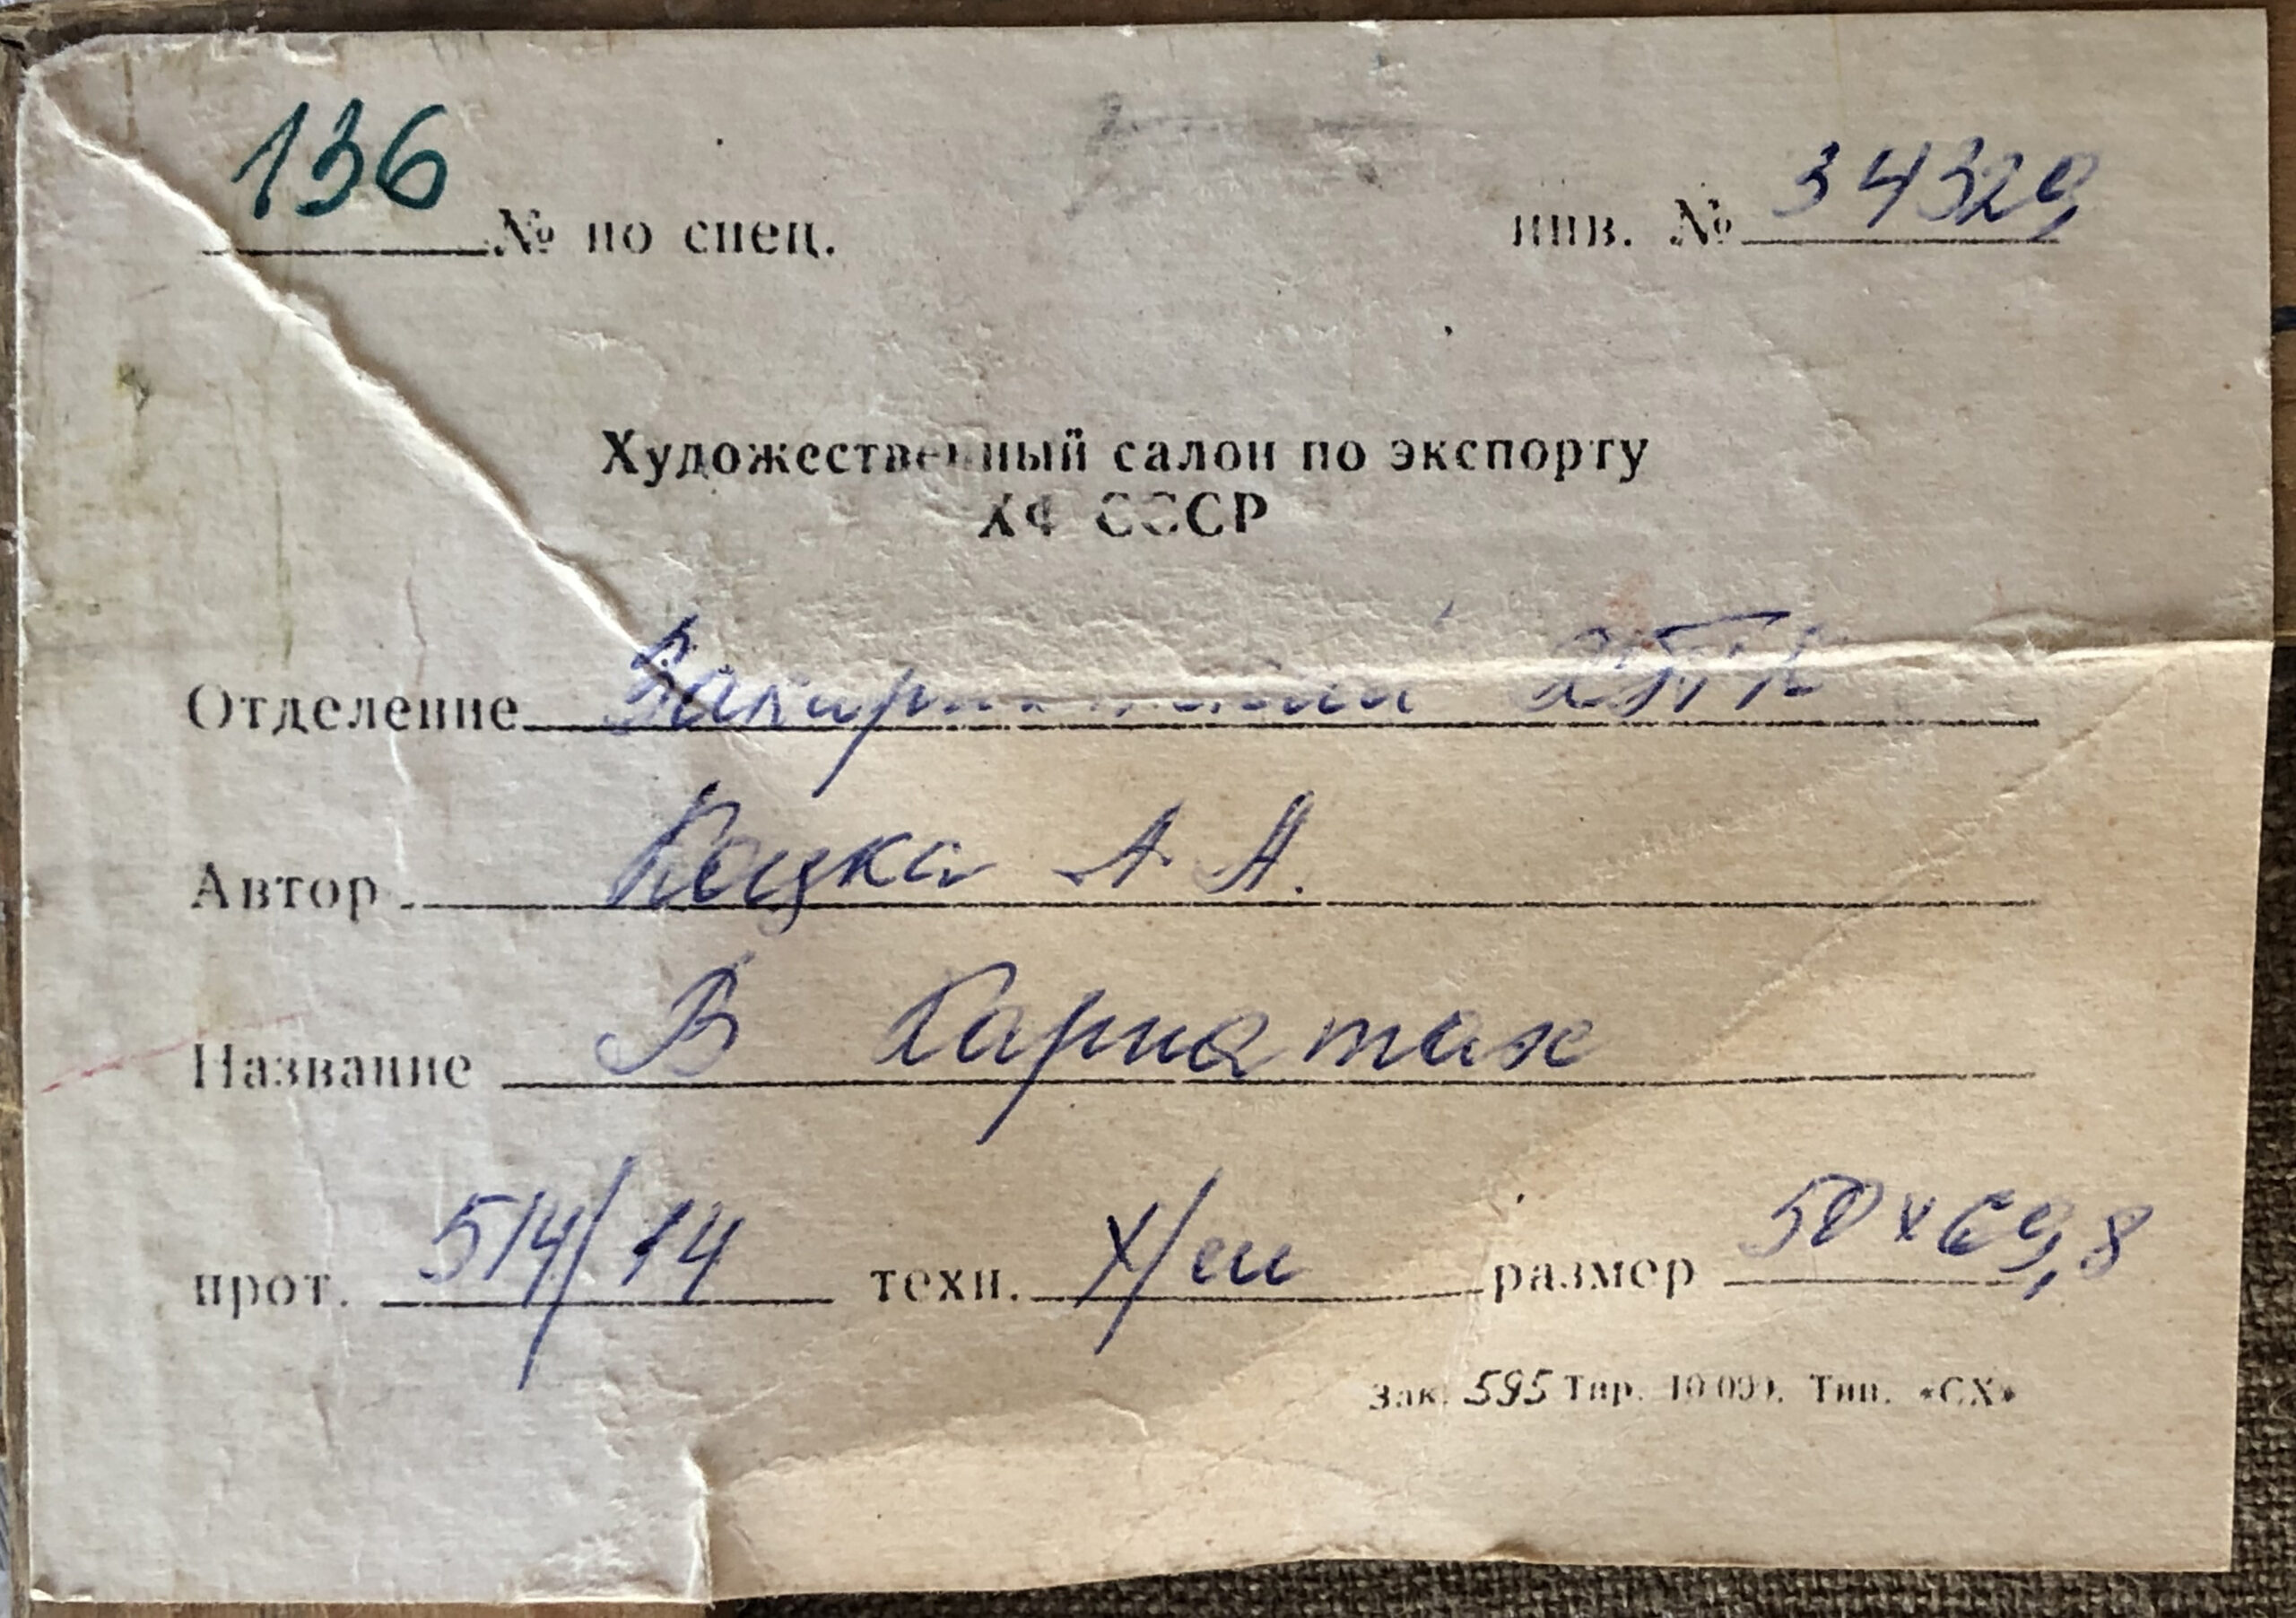 136 № по спец. инв. № 34329
Художественный салон по экспорту
ХФ СССР
Отделение
Автор Коцка А А.
Название В Карпатах
прот. 514/14 техн. х/м размер 50 х 69,8
Зак. 595 Тир. 10 000. Тип. «СХ»